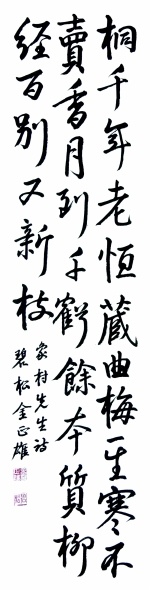 桐千年老恒藏曲梅一生寒不
賣香月到千虧餘本質柳
經百別又新枝
象村先生詩
碧松金正雄